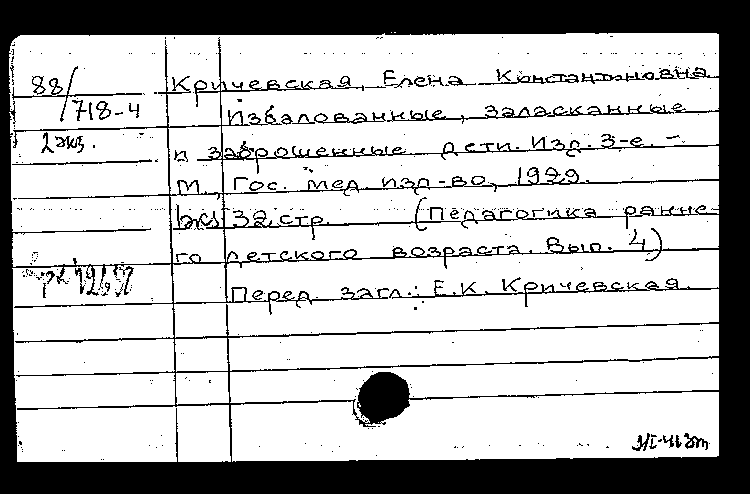 88/718-4
2 экз.
Кричевская, Елена Константиновна
Избалованные, заласканные
и заброшенные дети. Изд. 3-е. -
М., Гос. мед. изд-во, 1929.
32 стр. (Педагогика ранне-
го детского возраста. Вып. 4)
Перед загл.: Е.К. Кричевская.